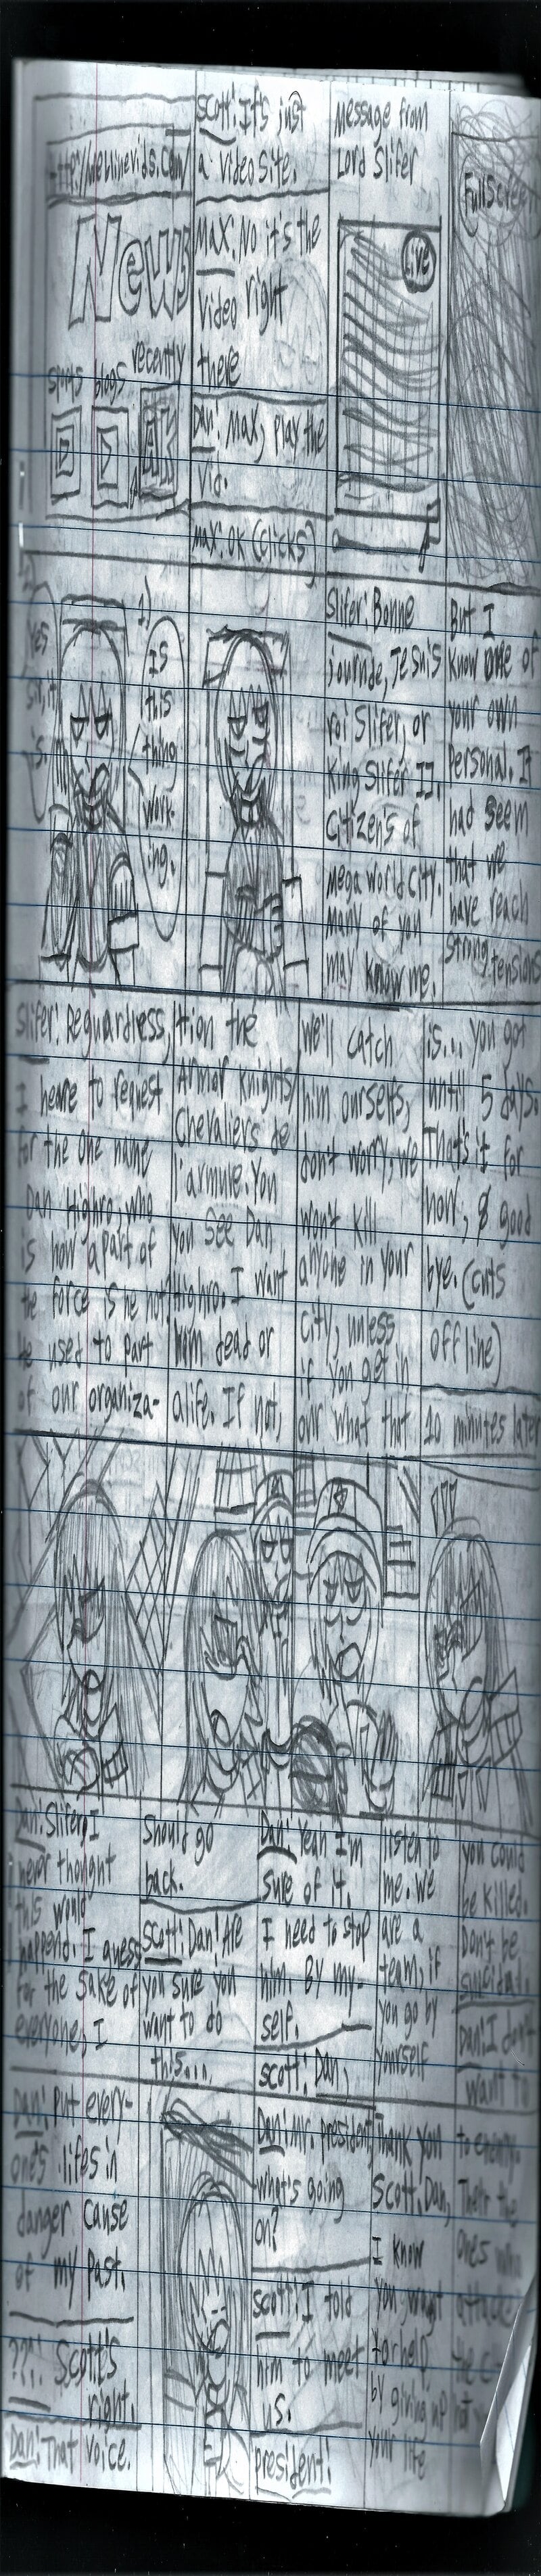 http://
News
sports blogs recently
Scott: It's just
a video site.
Max: No it's the
video right
there
Dan: Max, play the
vid.
Max: ok (clicks)
Message from
Lord Slifer
Live
Full Screen
Yes
1)
Is
this
thing
work-
ing.
Slifer: Bonne
journde, Je suis
roi Slifer, or
King Slifer II.
Citizens of
Mega World City.
Many of you
may know me.
But I
know one of
your own
personal. It
had seem
that we
have reach
strong tensions
Slifer: Reguardress,
I heare to request
for the one name
Dan Highro, who
is now a part of
the force is he not,
he used to part
of our organiza-
tion the
Armor Knights,
Chevaliers de
l'armure. You
you see Dan
Highro. I want
him dead or
alife. If not,
we'll catch
him ourselfs,
don't worry, we
won't kill
anyone in your
city, unless
if you get in
our what that
is... you got
until 5 days.
That's it for
now, & good
bye. (cuts
off line)
10 minutes later
Dan: Slifer, I
never thought
this would
happend. I guess
for the sake of
everyone, I
should go
back.
Scott: Dan! Are
you sure you
want to do
this...
Dan: Yeah I'm
sure of it.
I need to stop
him. By my-
self.
Scott: Dan,
listen to
me. we
are a
team, if
you go by
yourself
you could
be killed.
Don't be
suicidal.
Dan: I
want
Dan: Put every-
one's lifes in
danger cause
of my past.
???: Scott's
right.
Dan: That voice.
Dan: Mr. president
what's going
on?
Scott: I told
him to meet
us.
President:
Thank you
Scott. Dan,
I know
you want
to help
by giving up
your life
to
Their the
ones who